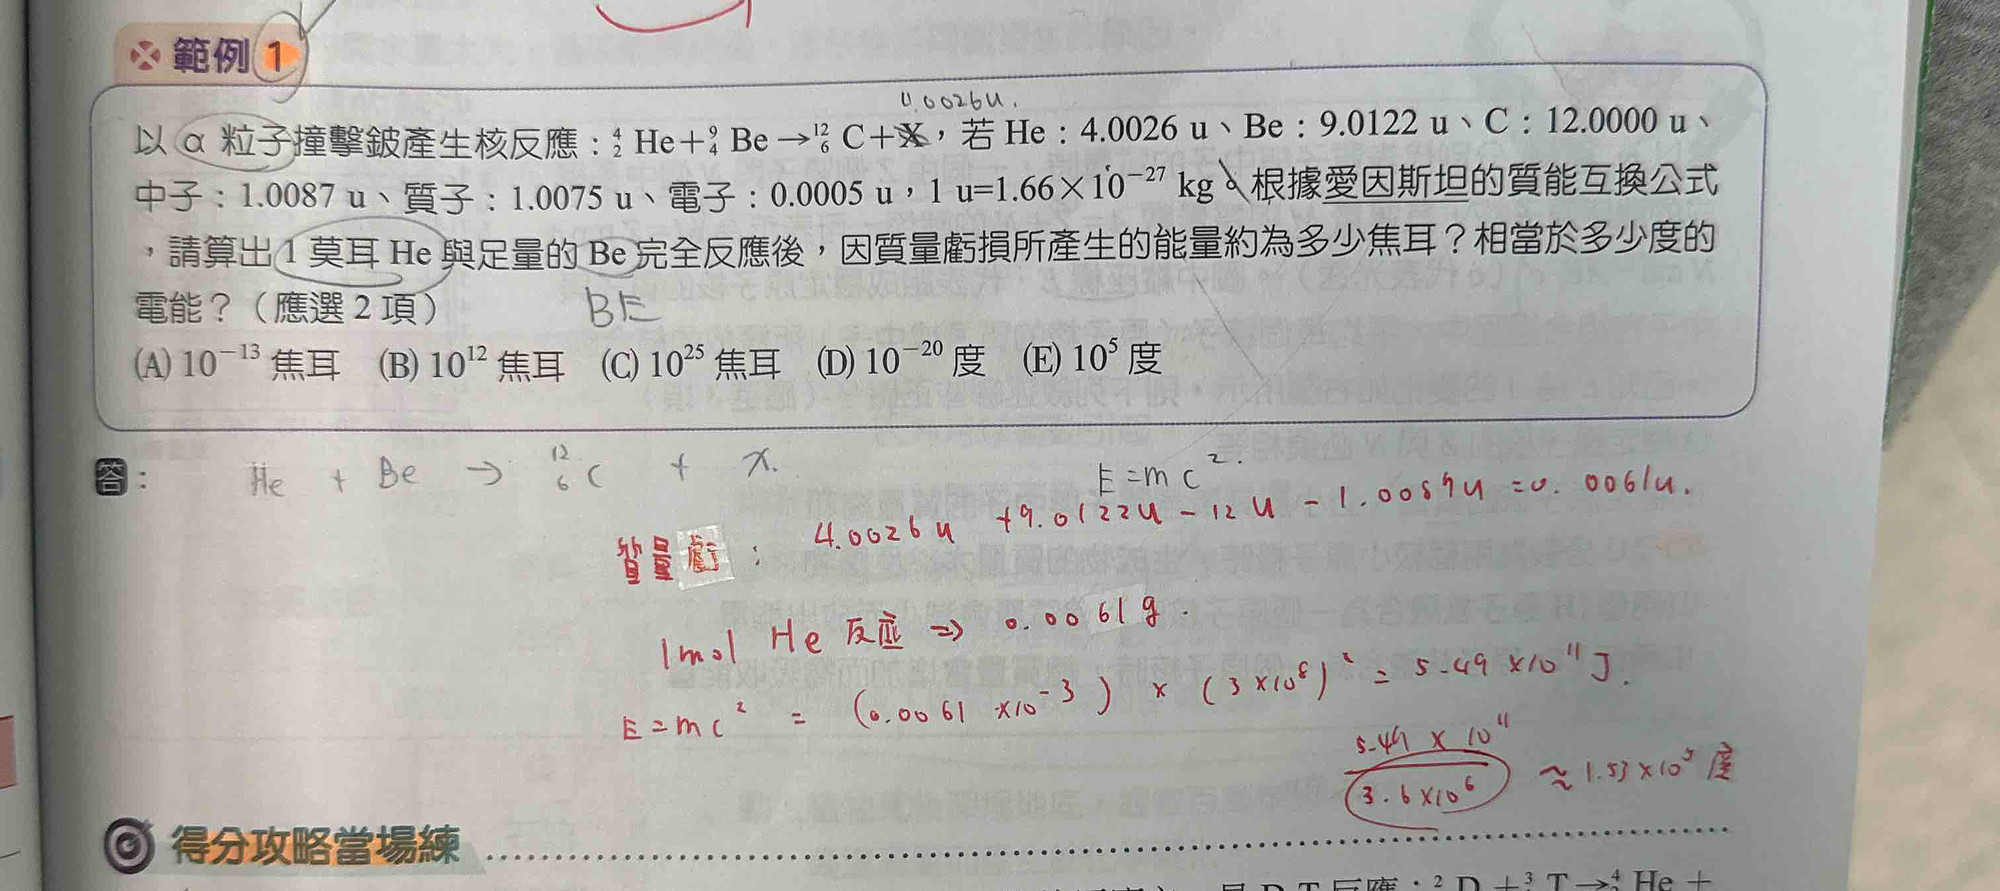 範例 1
4.0026u.
以 α 粒子撞擊鈹產生核反應：⁴₂He＋⁹₄Be→¹²₆C＋X，若 He：4.0026 u、Be：9.0122 u、C：12.0000 u、
中子：1.0087 u、質子：1.0075 u、電子：0.0005 u，1 u=1.66×10⁻²⁷ kg。根據愛因斯坦的質能互換公式
，請算出 1 莫耳 He 與足量的 Be 完全反應後，因質量虧損所產生的能量約為多少焦耳？相當於多少度的
電能？（應選 2 項）
BE
(A) 10⁻¹³ 焦耳　(B) 10¹² 焦耳　(C) 10²⁵ 焦耳　(D) 10⁻²⁰ 度　(E) 10⁵ 度
答：
He + Be → ¹²₆C + X.
E=mc².
質量虧：4.0026u +9.0122u -12u -1.0087u =0.0061u.
1mol He 反應 ⇒ 0.0061g.
E=mc² = (0.0061×10⁻³) × (3×10⁸)² = 5.49×10¹¹J.
5.49×10¹¹
3.6×10⁶ ≈ 1.53×10⁵度
得分攻略當場練
反應：²D＋³T→⁴He＋